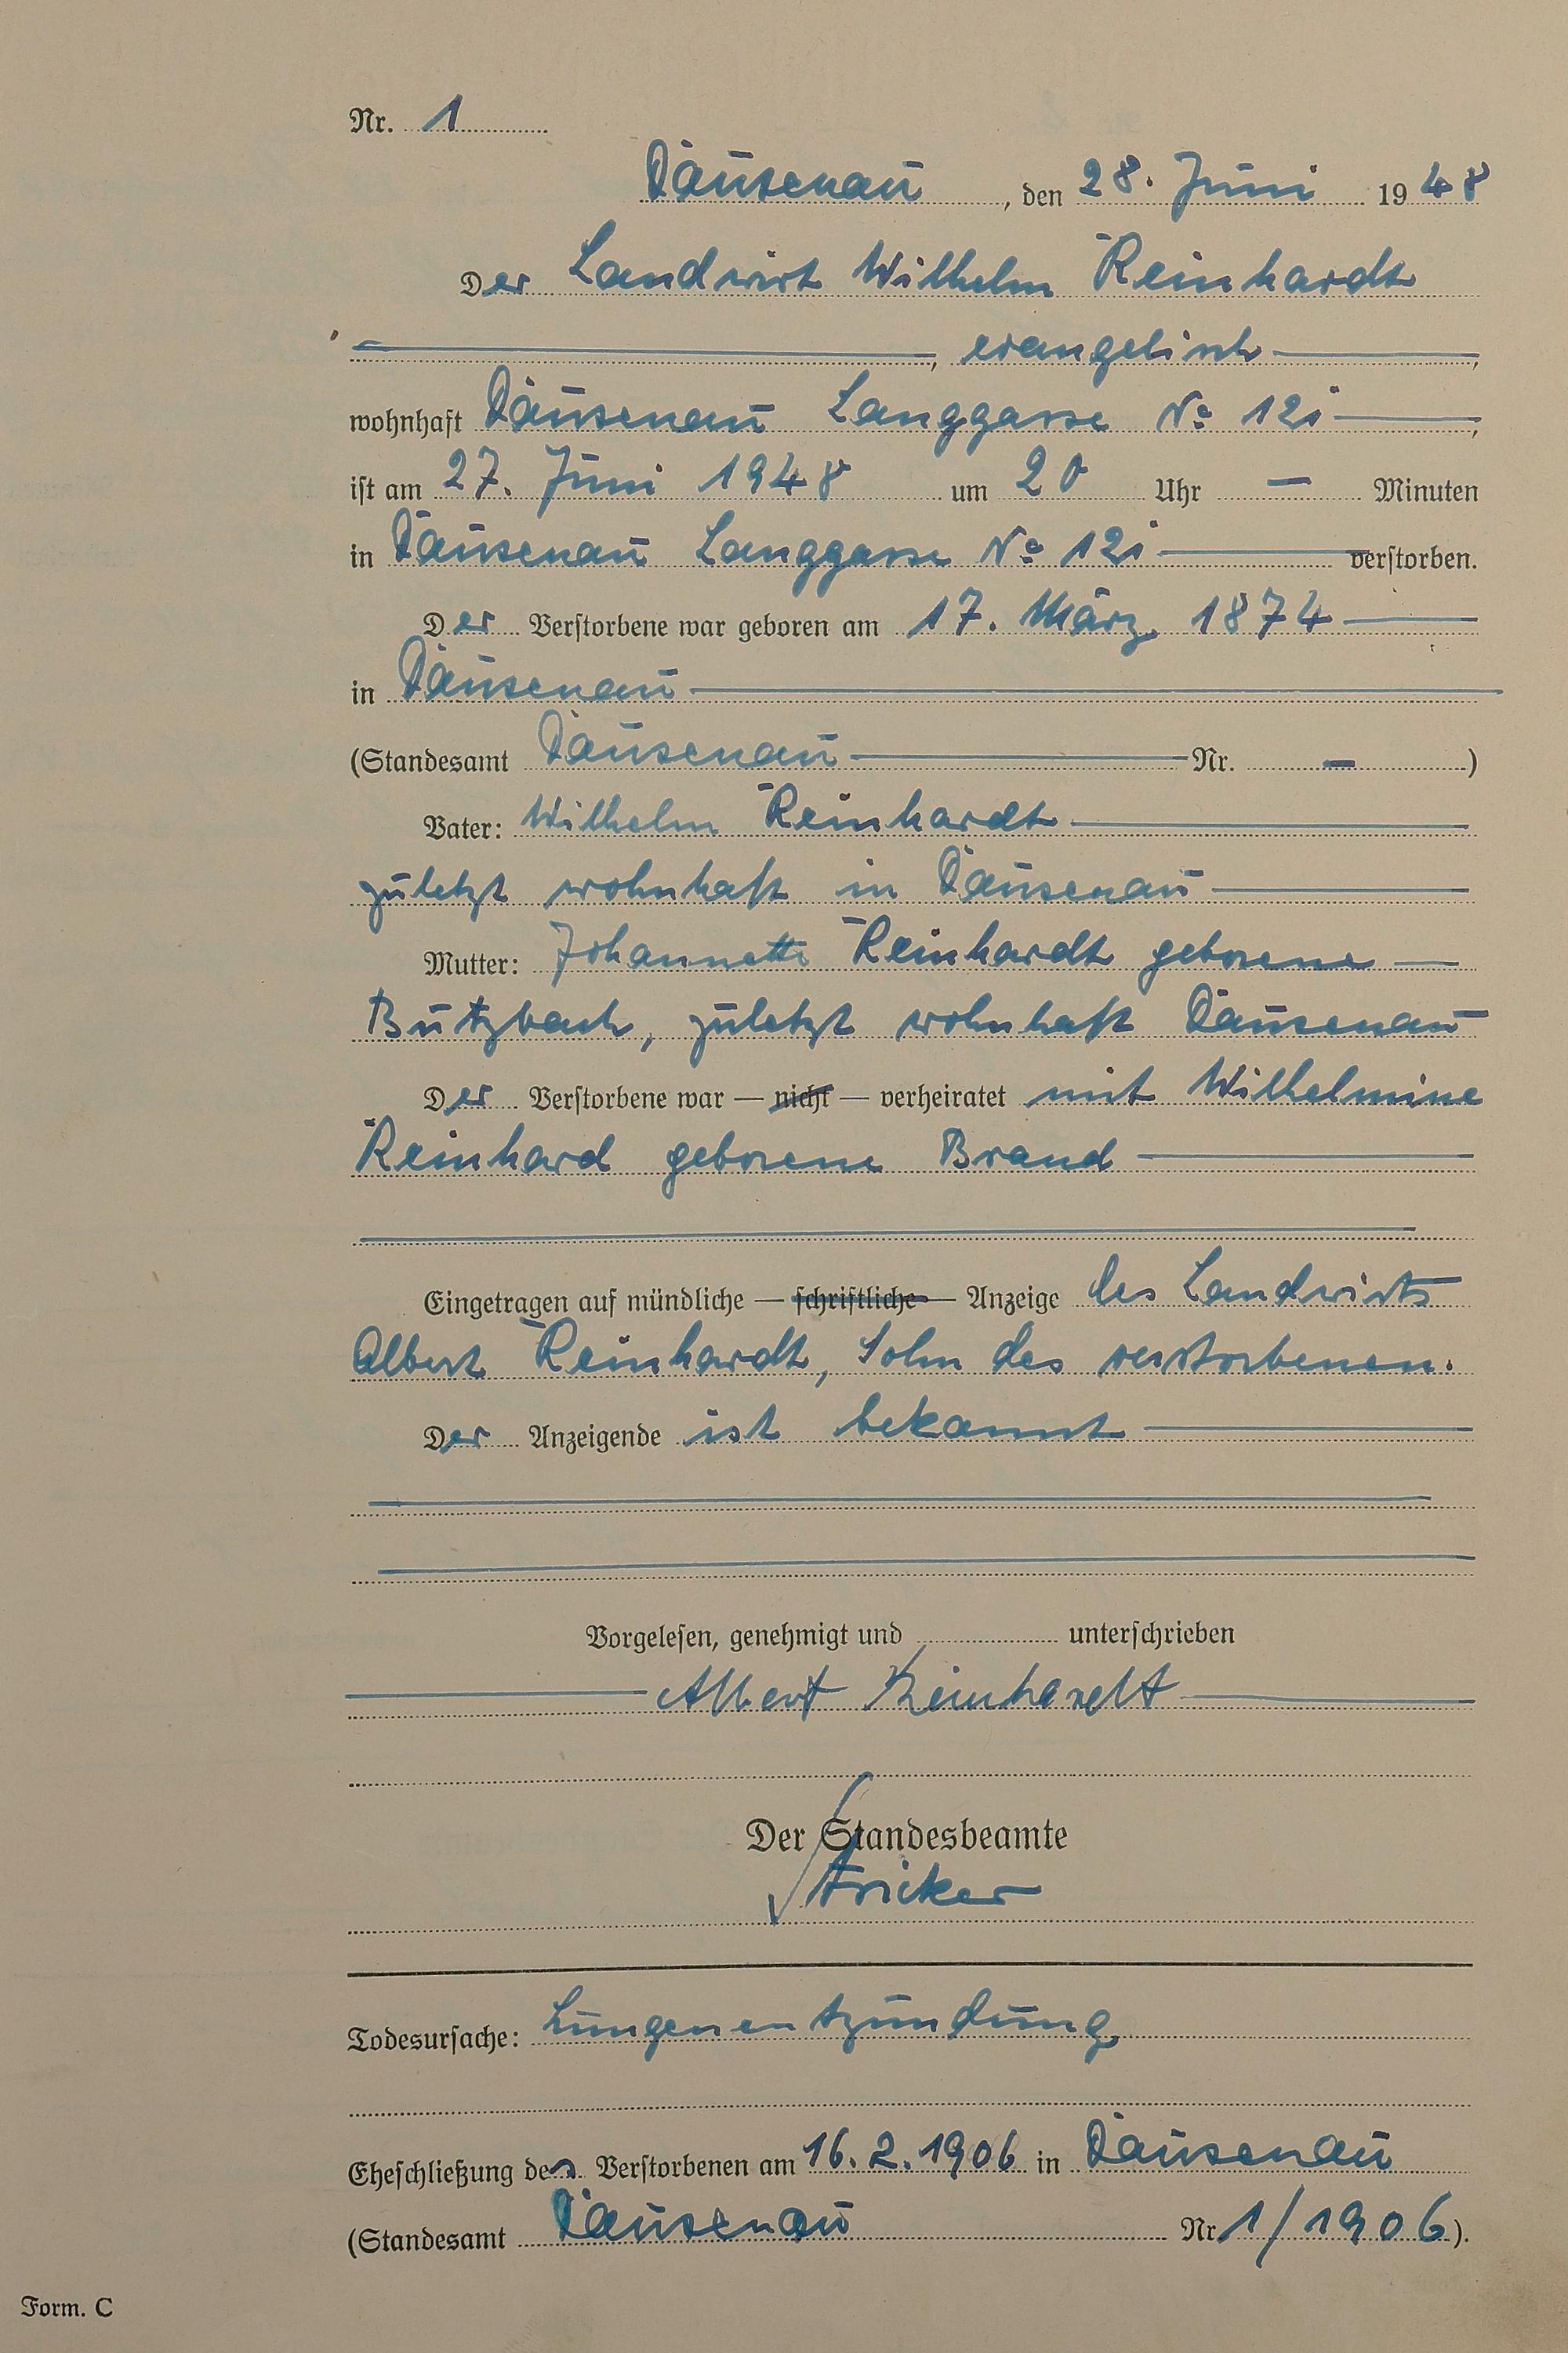 Nr. 1
Dausenau, den 28. Juni 1948
Der Landwirt Wilhelm Reinhardt
, evangelisch,
wohnhaft Dausenau Langgasse No 12i,
ist am 27. Juni 1948 um 20 Uhr — Minuten
in Dausenau Langgasse No 12i verstorben.
Der Verstorbene war geboren am 17. März 1874
in Dausenau
(Standesamt Dausenau Nr. —)
Vater: Wilhelm Reinhardt
zuletzt wohnhaft in Dausenau
Mutter: Johannette Reinhardt geborene
Butzbach, zuletzt wohnhaft Dausenau
Der Verstorbene war — nicht — verheiratet mit Wilhelmine
Reinhard geborene Brand
Eingetragen auf mündliche — schriftliche — Anzeige des Landwirts
Albert Reinhardt, Sohn des verstorbenen.
Der Anzeigende ist bekannt
Vorgelesen, genehmigt und unterschrieben
Albert Reinhardt
Der Standesbeamte
Stricker
Todesursache: Lungenentzündung
Eheschließung des Verstorbenen am 16.2.1906 in Dausenau
(Standesamt Dausenau Nr. 1/1906).
Form. C